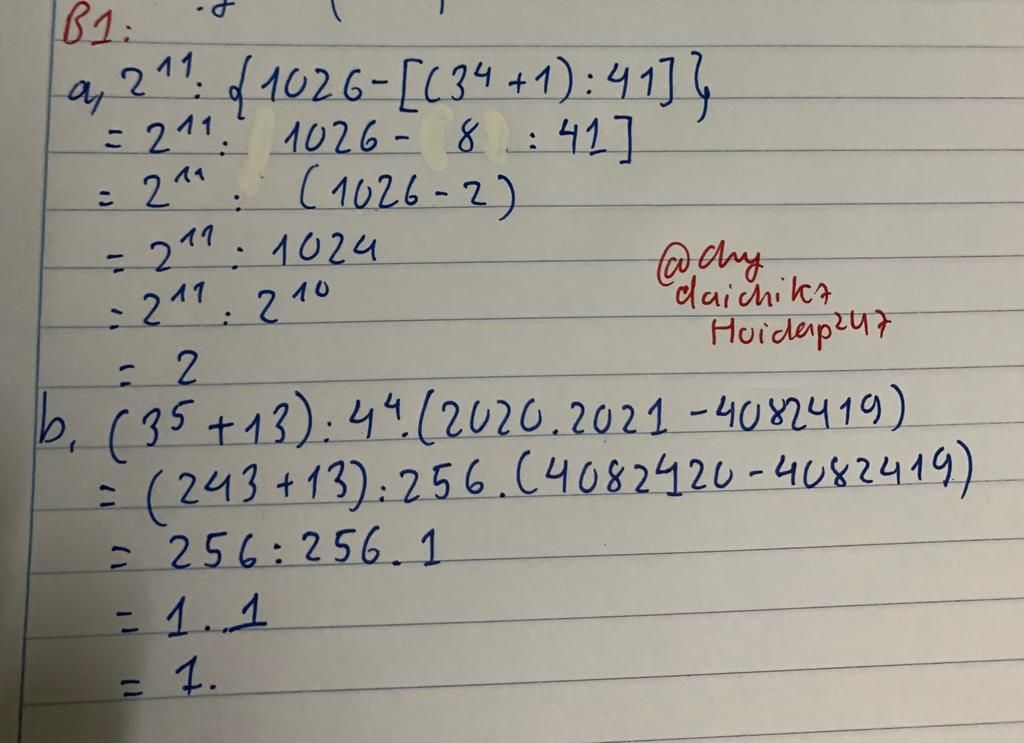 B1:
a, 2¹¹: {1026-[(3⁴+1):41]}
= 2¹¹: 1026- 8 : 41]
= 2¹¹ : (1026-2)
= 2¹¹ : 1024
= 2¹¹ : 2¹⁰
= 2
@chy
daichik7
Hoidap247
b, (3⁵+13):4⁴.(2020.2021-4082419)
= (243+13):256.(4082420-4082419)
= 256:256.1
= 1.1
= 1.